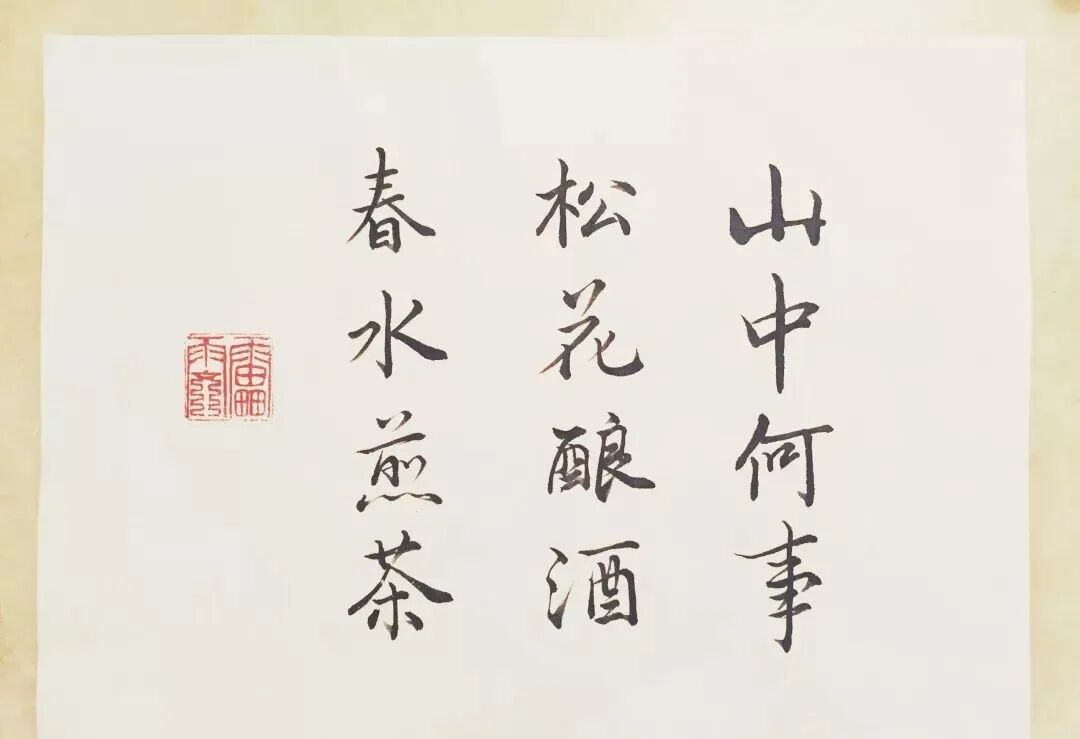 山中何事
松花酿酒
春水煎茶